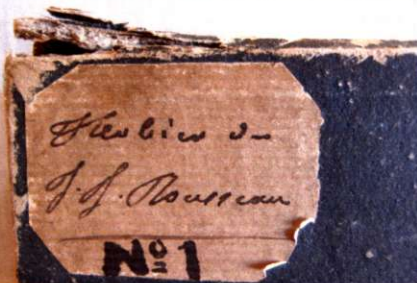 Herbier de
J. J. Rousseau
Nº 1